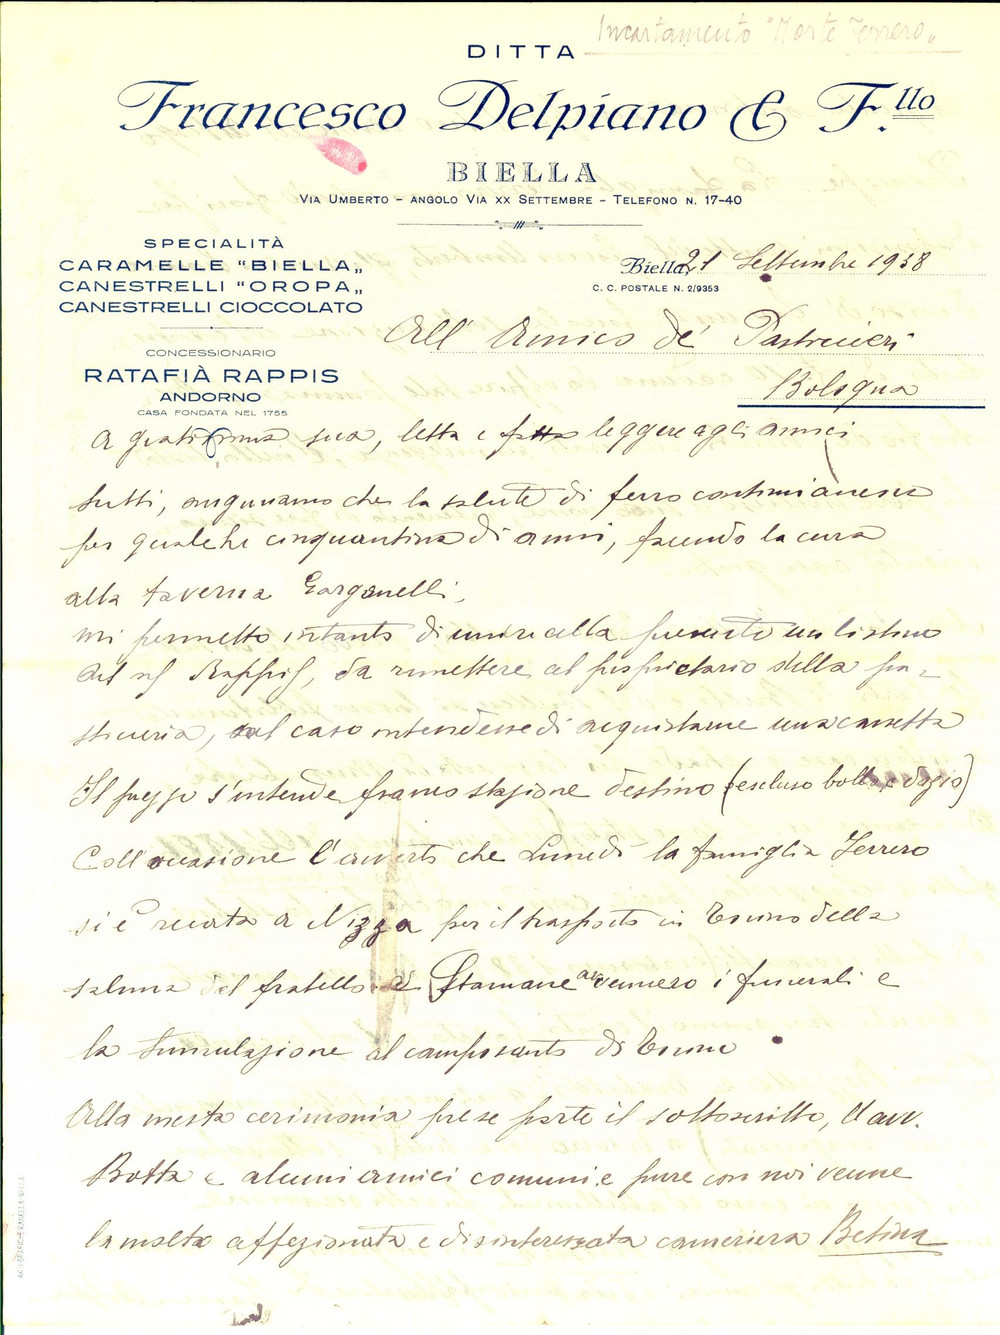 Incartamento "Morte Ferrero"
DITTA
Francesco Delpiano & F.llo
BIELLA
VIA UMBERTO - ANGOLO VIA XX SETTEMBRE - TELEFONO N. 17-40
SPECIALITÀ
CARAMELLE "BIELLA"
CANESTRELLI "OROPA"
CANESTRELLI CIOCCOLATO
CONCESSIONARIO
RATAFIÀ RAPPIS
ANDORNO
CASA FONDATA NEL 1755
Biella, 21 Settembre 1938
C. C. POSTALE N. 2/9353
All' Amico de' Pastricieri
Bologna
A gratissima sua, letta e fatta leggere agli amici
tutti, auguriamo che la salute di ferro continui ancora
per qualche cinquantina di anni, facendo la cura
alla taverna Garganelli,
mi permetto intanto di unire alla presente un listino
del Rappis, da rimettere al proprietario della pa-
sticceria, nel caso intendesse di acquistarne una cassetta
Il prezzo s'intende franco stazione destino (escluso bolla e dazio)
Coll'occasione l'avverto che Lunedì la famiglia Ferrero
si è recata a Nizza per il trasporto in Torino della
salma del fratello e stamane avvennero i funerali e
la tumulazione al camposanto di Torino
Alla mesta cerimonia prese parte il sottoscritto, l'avv.
Botta e alcuni amici comuni e pure con noi venne
la molto affezionata e disinteressata cameriera Betina